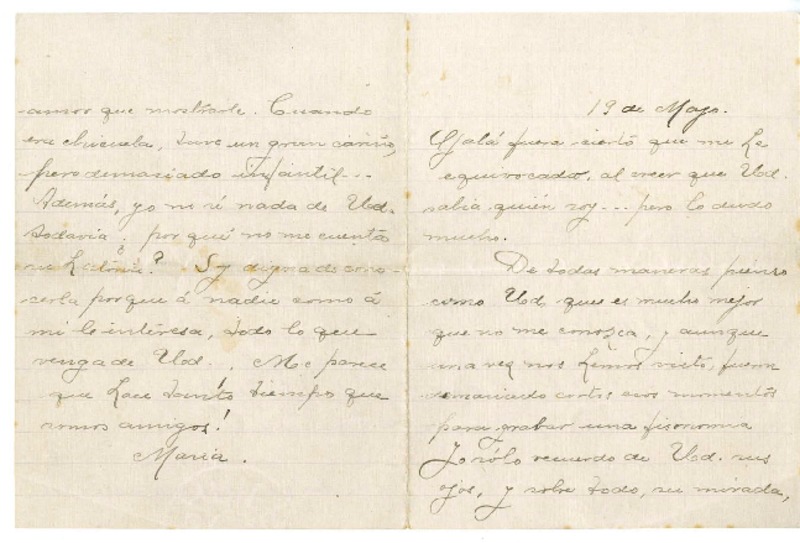 19 de Mayo.
Ojalá fuera cierto que me he
equivocado, al creer que Ud.
sabia quién soy... pero lo dudo
mucho.
De todas maneras pienso
como Ud. que es mucho mejor
que no me conosca, y aunque
una vez nos hemos visto, fueron
demasiado cortos esos momentos
para grabar una fisonomia
Yo sólo recuerdo de Ud. sus
ojos, y sobre todo, su mirada,
amor que mostrarle. Cuando
era chicuela, tuve un gran cariño,
pero demasiado infantil...
Además, yo ni sé nada de Ud.
todavia; ¿por qué no me cuenta
su historia? Soy digna de cono-
cerla porque á nadie como á
mi le intéresa, todo lo que
venga de Ud.. Me parece
que hace tanto tiempo que
somos amigos!
Maria.